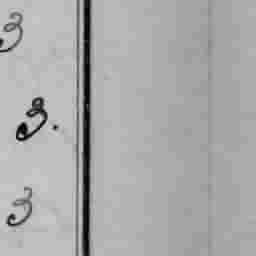 3
3.
3